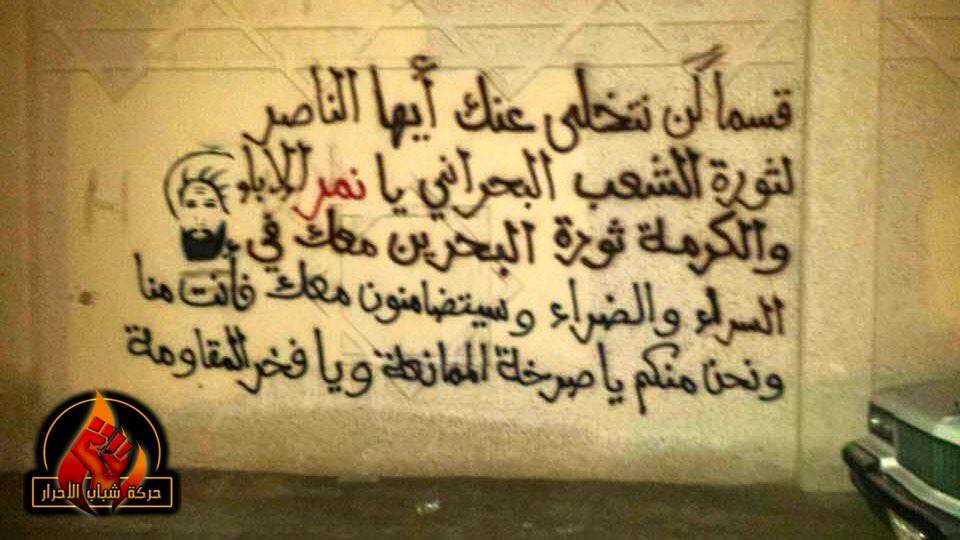 قسماً لن نتخلى عنك أيها الناصر
لثورة الشعب البحراني يا نمر الإباء
والكرمة ثورة البحرين معك في
السراء والضراء وسيتضامنون معك فأنت منا
ونحن منكم يا صرخة الممانعة ويا فخر المقاومة
حركة شباب الأحرار